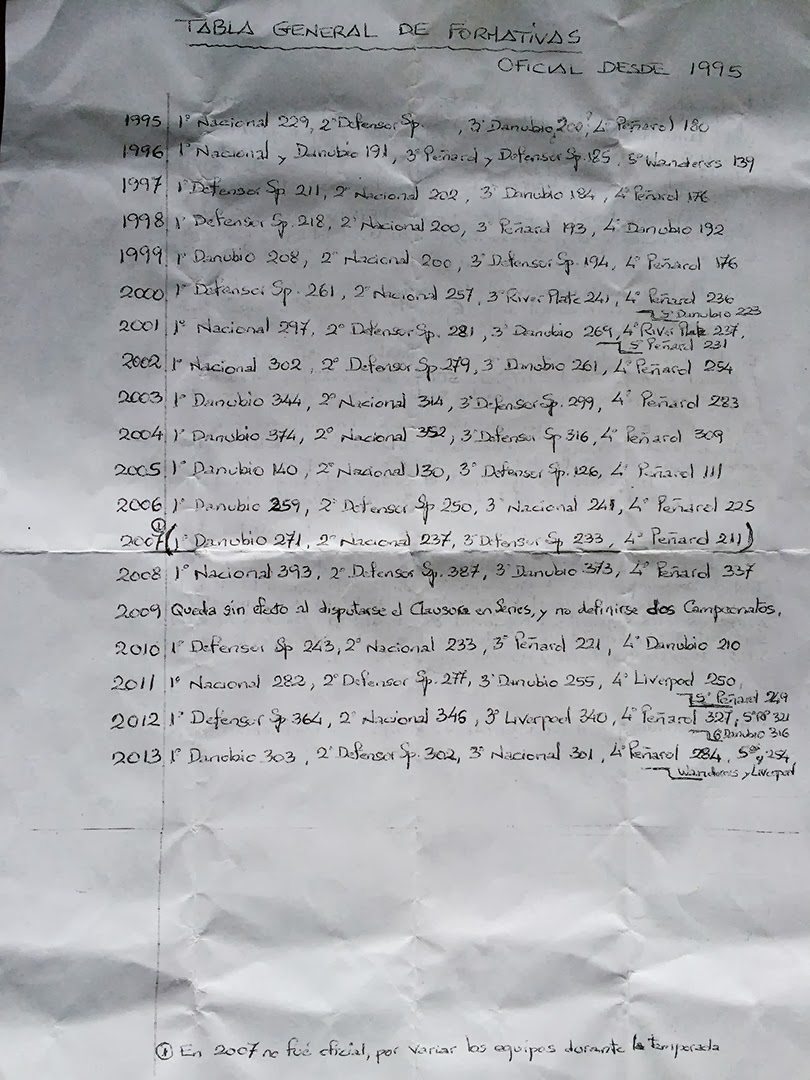 TABLA GENERAL DE FORMATIVAS
OFICIAL DESDE 1995
1995 1º Nacional 229, 2º Defensor Sp. , 3º Danubio 200?, 4º Peñarol 180
1996 1º Nacional y Danubio 191, 3º Peñarol y Defensor Sp. 185, 5º Wanderers 139
1997 1º Defensor Sp 211, 2º Nacional 202, 3º Danubio 184, 4º Peñarol 176
1998 1º Defensor Sp. 218, 2º Nacional 200, 3º Peñarol 193, 4º Danubio 192
1999 1º Danubio 208, 2º Nacional 200, 3º Defensor Sp. 194, 4º Peñarol 176
2000 1º Defensor Sp. 261, 2º Nacional 257, 3º River Plate 241, 4º Peñarol 236
5º Danubio 223
2001 1º Nacional 297, 2º Defensor Sp. 281, 3º Danubio 269, 4º River Plate 237,
5º Peñarol 231
2002 1º Nacional 302, 2º Defensor Sp 279, 3º Danubio 261, 4º Peñarol 254
2003 1º Danubio 344, 2º Nacional 314, 3º Defensor Sp. 299, 4º Peñarol 283
2004 1º Danubio 374, 2º Nacional 352, 3º Defensor Sp 316, 4º Peñarol 309
2005 1º Danubio 140, 2º Nacional 130, 3º Defensor Sp. 126, 4º Peñarol 111
2006 1º Danubio 259, 2º Defensor Sp 250, 3º Nacional 241, 4º Peñarol 225
①
2007 (1º Danubio 271, 2º Nacional 237, 3º Defensor Sp 233, 4º Peñarol 211)
2008 1º Nacional 393, 2º Defensor Sp. 387, 3º Danubio 373, 4º Peñarol 337
2009 Queda sin efecto al disputarse el Clausura en Series, y no definirse dos Campeonatos.
2010 1º Defensor Sp 243, 2º Nacional 233, 3º Peñarol 221, 4º Danubio 210
2011 1º Nacional 282, 2º Defensor Sp. 277, 3º Danubio 255, 4º Liverpool 250,
5º Peñarol 249
2012 1º Defensor Sp 364, 2º Nacional 346, 3º Liverpool 340, 4º Peñarol 327, 5º RP 321
6º Danubio 316
2013 1º Danubio 303, 2º Defensor Sp. 302, 3º Nacional 301, 4º Peñarol 284, 5º 254
Wanderers y Liverpool
① En 2007 no fué oficial, por variar los equipos durante la temporada